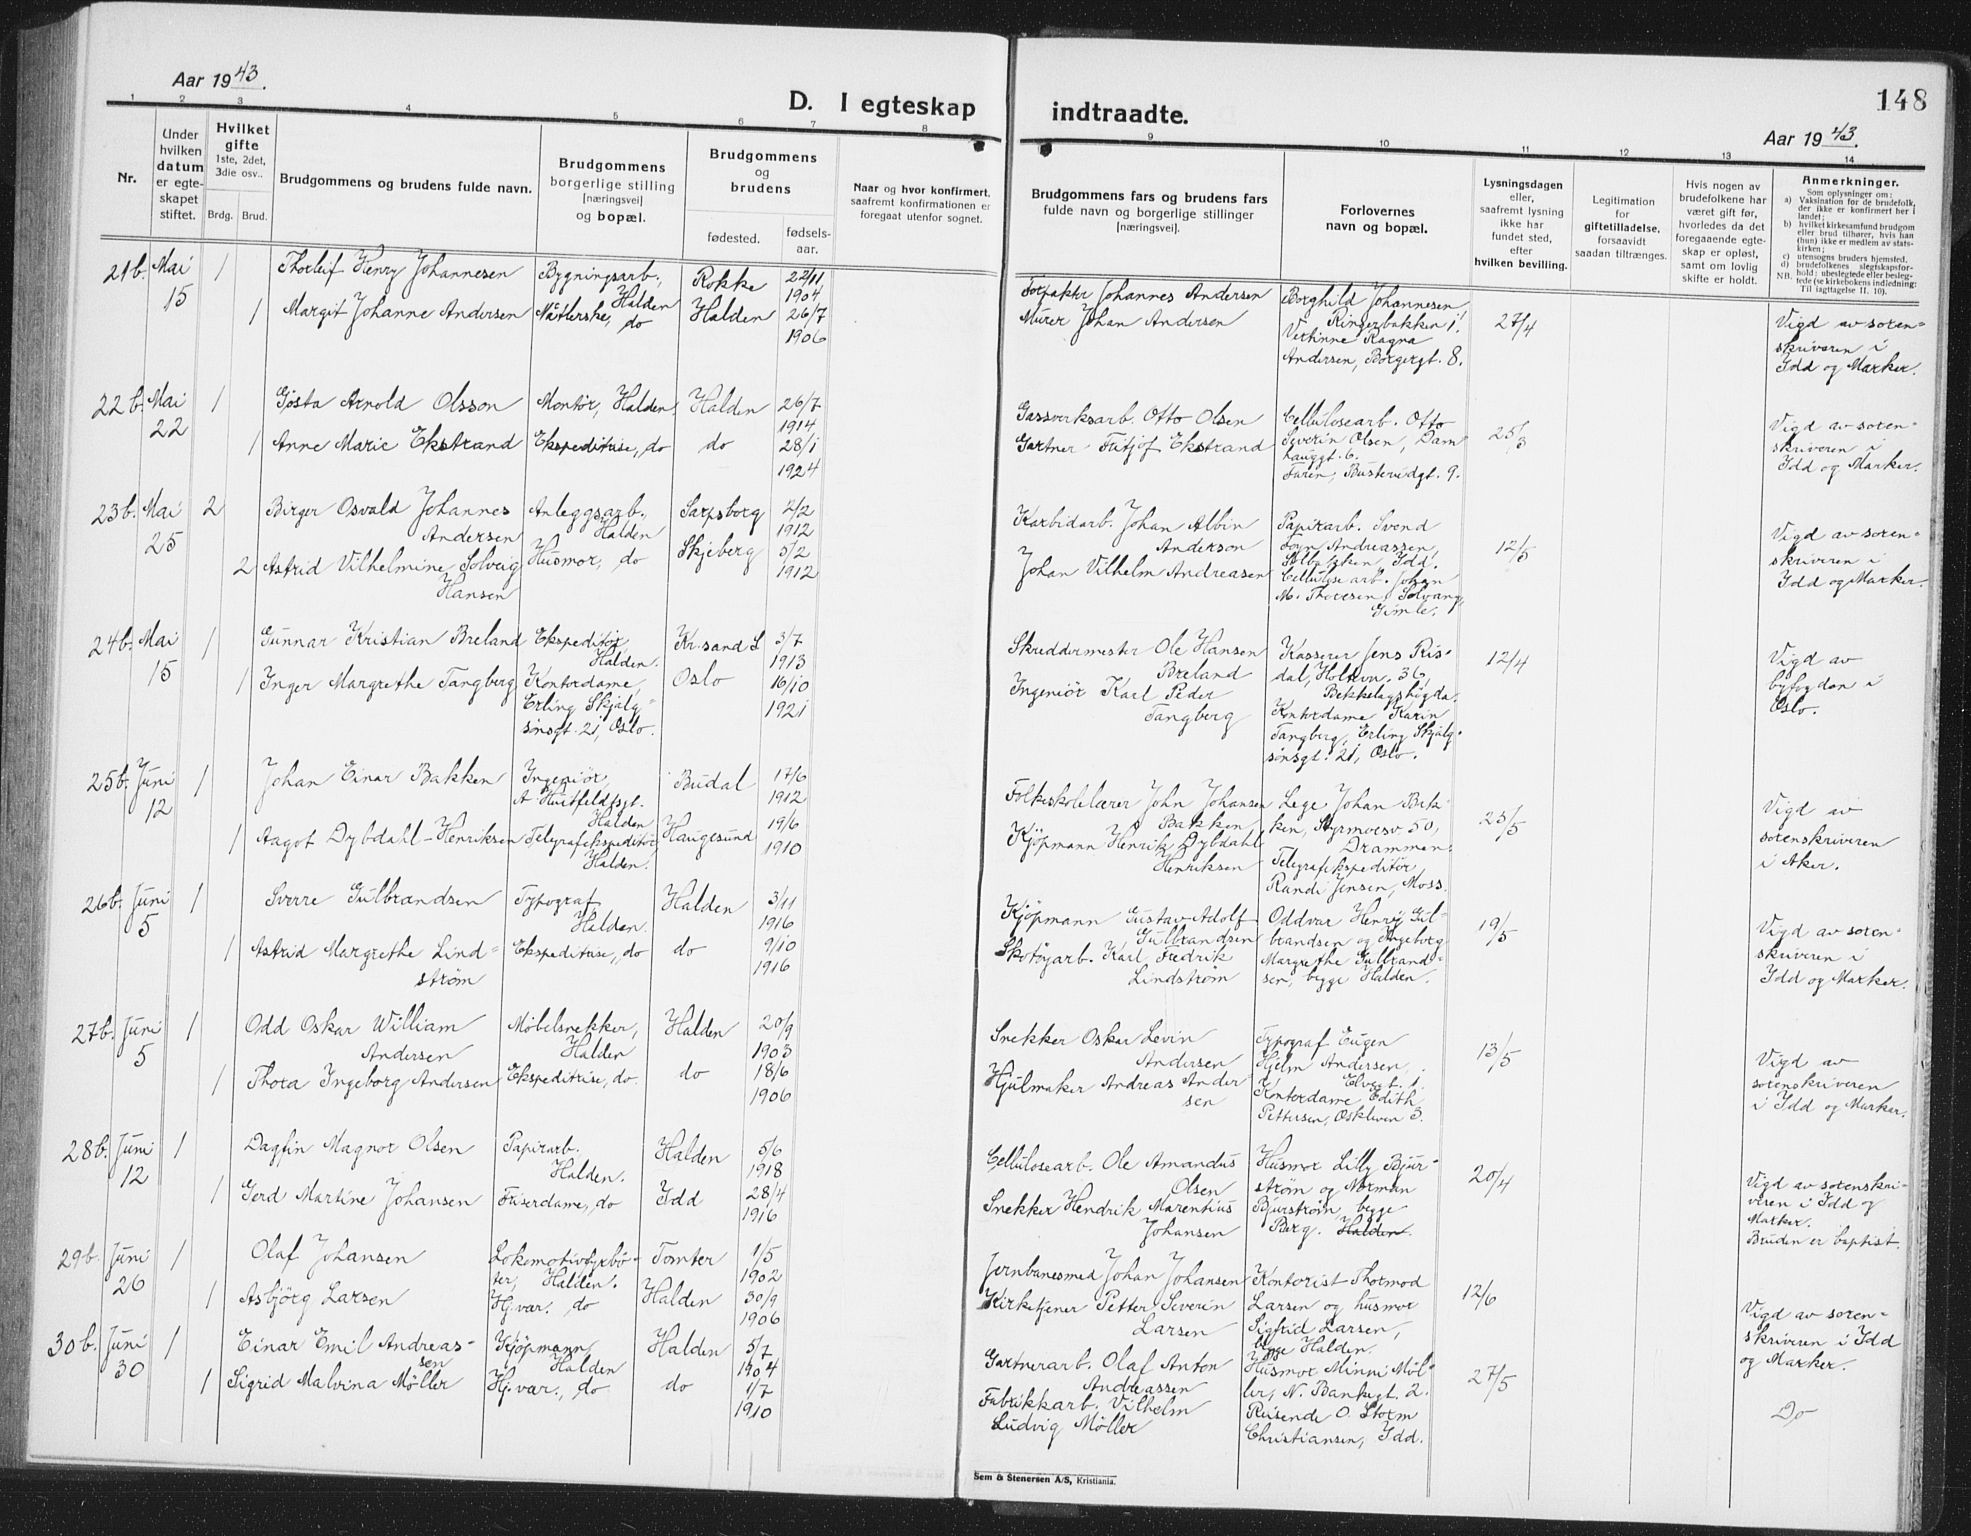 Aar 1943.
D. I egteskap
1 2 3 4 5 6 7 8
Nr.
Under hvilken datum er egte-skapet stiftet.
Hvilket gifte
1ste, 2det, 3die osv..
Brdg. Brud.
Brudgommens og brudens fulde navn.
Brudgommens borgerlige stilling [næringsvei] og bopæl.
Brudgommens og brudens
fødested. fødsels-aar.
Naar og hvor konfirmert, saafremt konfirmationen er foregaat utenfor sognet.
21b. Mai 1 Thorleif Henry Johannesen Bygningsarb., Rokke 22/11
15 Halden 1904
1 Margit Johanne Andersen Nåtlerske, do Halden 26/7
1906
22b. Mai 1 Gösta Arnold Olsson Montör, Halden Halden 26/7
22 1914
1 Anne Marie Ekstrand Ekspeditrise, do do 28/1
1924
23b. Mai 2 Birger Osvald Johannes Anleggsarb., Sarpsborg 2/2
25 Andersen Halden 1912
2 Astrid Vilhelmine Solveig Husmor, do Skjeberg 5/2
Hansen 1912
24b. Mai 1 Gunnar Kristian Breland Ekspeditör Kr.sand S 3/7
15 Halden. 1913
1 Inger Margrethe Tangberg Kontordame, Oslo 16/10
Erling Skjalg= 1921
sönsgt. 21, Oslo.
25b. Juni 1 Johan Einar Bakken Ingeniör, Budal 17/6
12 A. Huitfeldtsgt. 1912
Halden
1 Aagot Dybdahl-Henriksen Telegrafekspeditör Haugesund 19/6
Halden. 1910
26b. Juni 1 Sverre Gulbrandsen Typograf, Halden 3/11
5 Halden. 1916
1 Astrid Margrethe Lind= Ekspeditrise, do do 9/10
ström 1916
27b. Juni 1 Odd Oskar William Möbelsnekker, Halden 20/9
5 Andersen Halden 1903
1 Thora Ingeborg Andersen Ekspeditrise, do. do 18/6
1906
28b. Juni 1 Dagfin Magnor Olsen Papirarb. Halden 5/6
12 Halden. 1918
1 Gerd Martine Johansen Friserdame, do Idd 28/4
1916
29b. Juni 1 Olaf Johansen Lokomotivfyrbö- Tomter 1/5
26 ter, Halden. 1902
1 Asbjörg Larsen Hj.var. do Halden 30/9
1906
30b. Juni 1 Einar Emil Andreas- Kjöpmann Halden 5/7
30 sen Halden 1904
1 Sigrid Malvina Möller Hj.var., do do 1/7
1910
148
indtraadte.
Aar 1943.
9 10 11 12 13 14
Brudgommens fars og brudens fars fulde navn og borgerlige stillinger [næringsvei].
Forlovernes navn og bopæl.
Lysningsdagen eller, saafremt lysning ikke har fundet sted, efter hvilken bevilling.
Legitimation for giftetilladelse, forsaavidt saadan tiltrænges.
Hvis nogen av brudefolkene har været gift før, hvorledes da det foregaaende egte-skap er opløst, samt om lovlig skifte er holdt.
Anmerkninger.
Som oplysninger om:
a) Vaksination for de brudefolk, der ikke er konfirmert her i landet;
b) hvilket kirkesamfund brudgom eller brud tilhører, hvis han (hun) ikke er medlem av stats-kirken;
c) utensogns bruders hjemsted.
d) brudefolkenes slegtskapsfor-hold: ubeslegtede eller besleg-tede (se kirkebokens indledning:
NB. Til iagttagelse II. 10).
Forpakter Johannes Andersen Borghild Johannesen,
Murer Johan Andersen Ringerbakken 1. 27/4 Vigd av soren=
Vertinne Ragna skriveren i
Andersen, Borgergt. 8. Idd og Marker.
Gassverksarb. Otto Olsen Cellulosearb. Otto Vigd av soren=
Gartner Fritjof Ekstrand Severin Olsen, Dam 25/3 skriveren i
hauggt. 6. Idd og Marker.
Faren, Busterudgt. 9.
Karbidarb. Johan Albin Papirarb. Svend Vigd av soren=
Anderson Andreassen, 12/5 skriveren i
Johan Vilhelm Andreasen Idd. Idd og Marker.
Cellulosearb. Johan
M. Thoresen, Solvang,
Gimle.
Skreddermester Ole Hansen Kasserer Jens Ris= 12/4 Vigd av
Breland dal, Holtevn. 36, byfogden i
Ingeniör Karl Peder Bekkelagshögda. Oslo.
Tangberg Kontordame Karin
Tangberg, Erling Skjalg-
sönsgt. 21, Oslo.
Folkeskolelærer John Johansen Lege Johan Bak- Vigd av
Bakken ken, Styrmoesv 50, 25/5 sorenskriveren
Kjöpmann Henrik Dybdahl Drammen. i Aker.
Henriksen Telegrafekspeditör
Randi Jensen, Moss.
Kjöpmann Gustav Adolf Oddvar Henry Gul= 19/5 Vigd av soren=
Gulbrandsen brandsen og Ingeborg skriveren i
Skotöyarb. Karl Fredrik Margrethe Gulbrand= Idd og Marker.
Lindström sen, begge Halden.
Snekker Oskar Levin Typograf Eugen Vigd av
Andersen Hjelm Andersen, 13/5 sorenskriveren
Hjulmaker Andreas Ander Elvegt. 1. i Idd og Marker.
sen Kontordame Edith
Pettersen, Oskleven 3.
Cellulosearb. Ole Amandus Husmor Lilly Bjur= 20/4 Vigd av sorenskri=
Olsen ström og Norman veren i Idd og
Snekker Hendrik Marentius Bjurström, begge Marker.
Johansen Berg. Halden. Bruden er baptist.
Jernbanesmed Johan Johansen Kontorist Thormod 12/6 Vigd av soren=
Kirketjener Petter Severin Larsen og husmor skriveren i Idd
Larsen Sigfrid Larsen, og Marker.
begge Halden.
Gartnerarb. Olaf Anton Husmor Minni Möl- 27/5
Andreassen ler, N. Bankegt. 2. Do
Fabrikkarb. Vilhelm Reisende O. Storm
Ludvig Möller Christiansen, Idd.
Sem & Stenersen A/S, Kristiania.